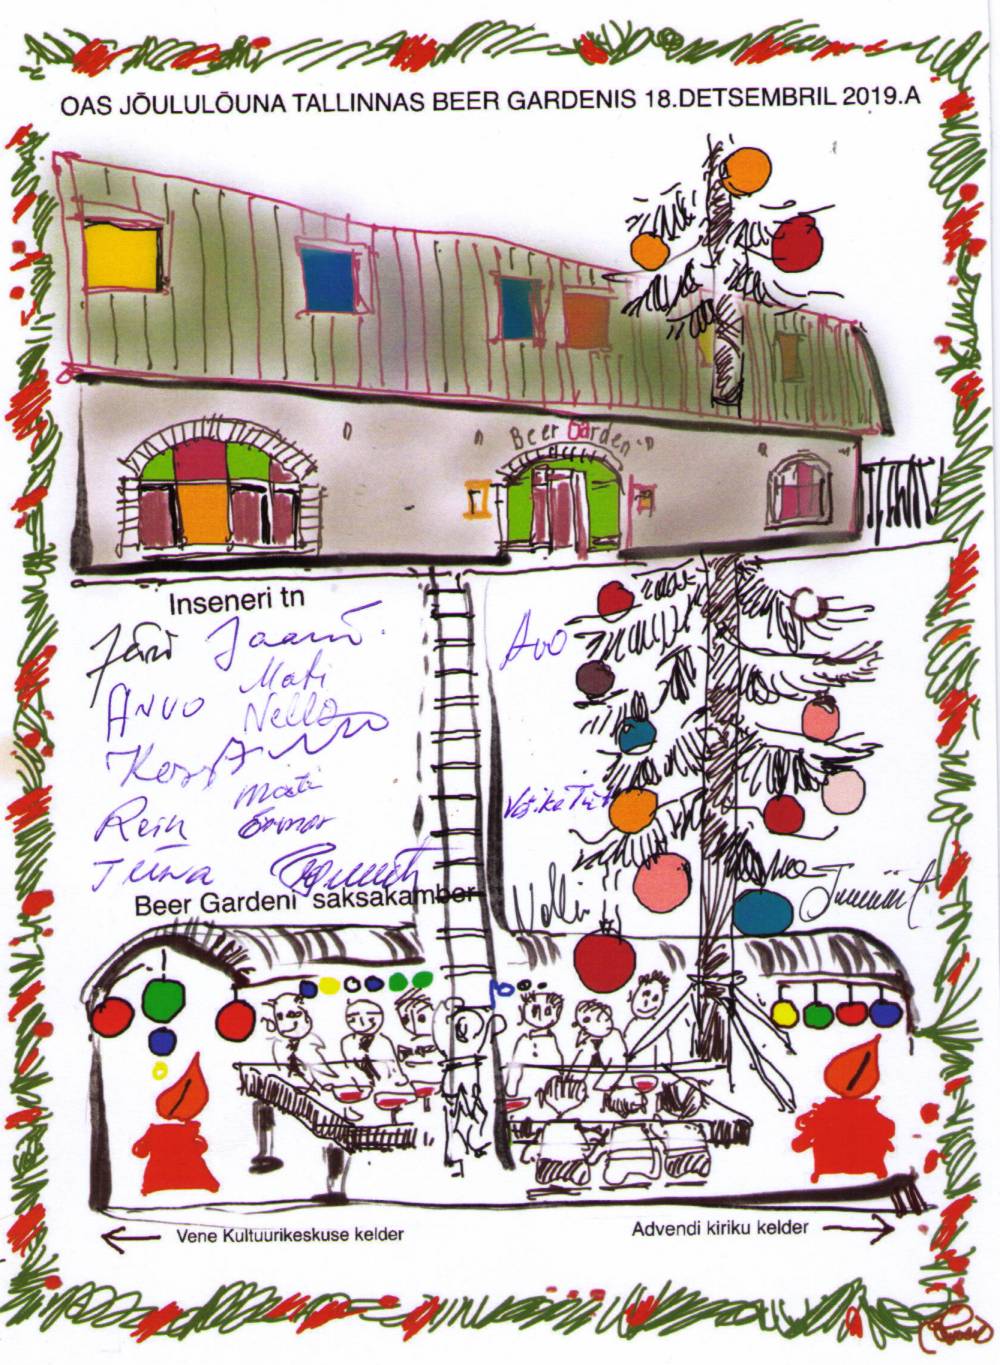 OAS JÕULULÕUNA TALLINNAS BEER GARDENIS 18.DETSEMBRIL 2019.A
Beer Garden
Inseneri tn
Jüri Jaano
Avo
Mati
ANVO Nello
Mati
Väike Tiit
Rein
Tiina
Beer Gardeni saksakamber
Volli
Vene Kultuurikeskuse kelder
Advendi kiriku kelder